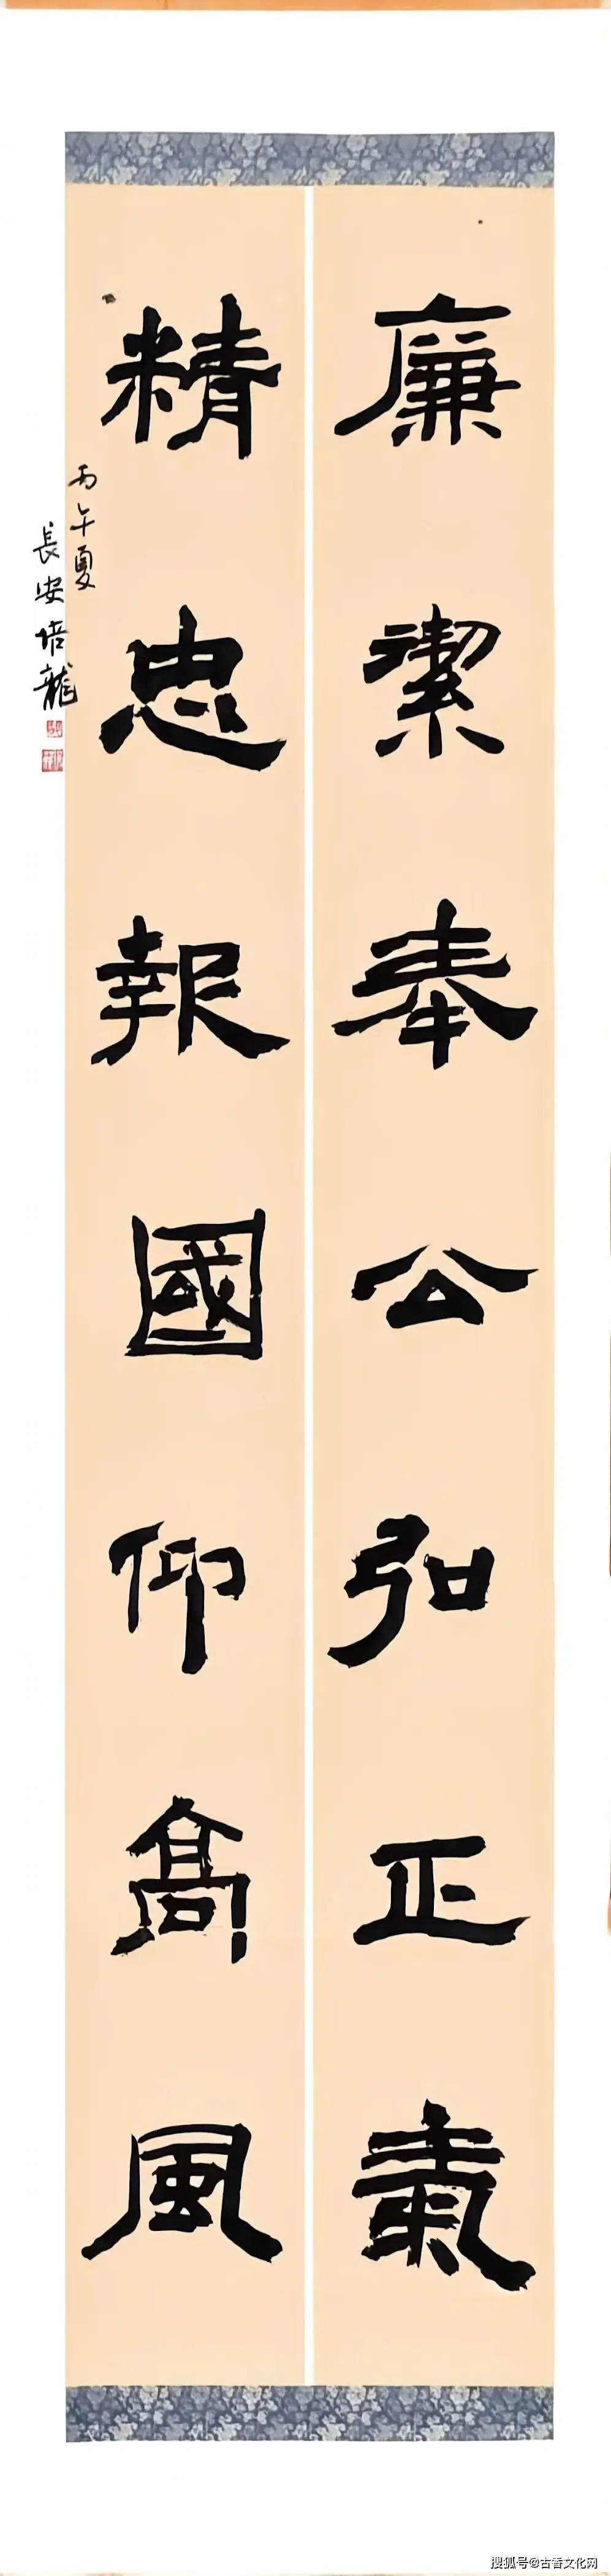 廉潔奉公弘正氣
精忠報國仰高風
丙午夏
長安培龍
搜狐号@古香文化网